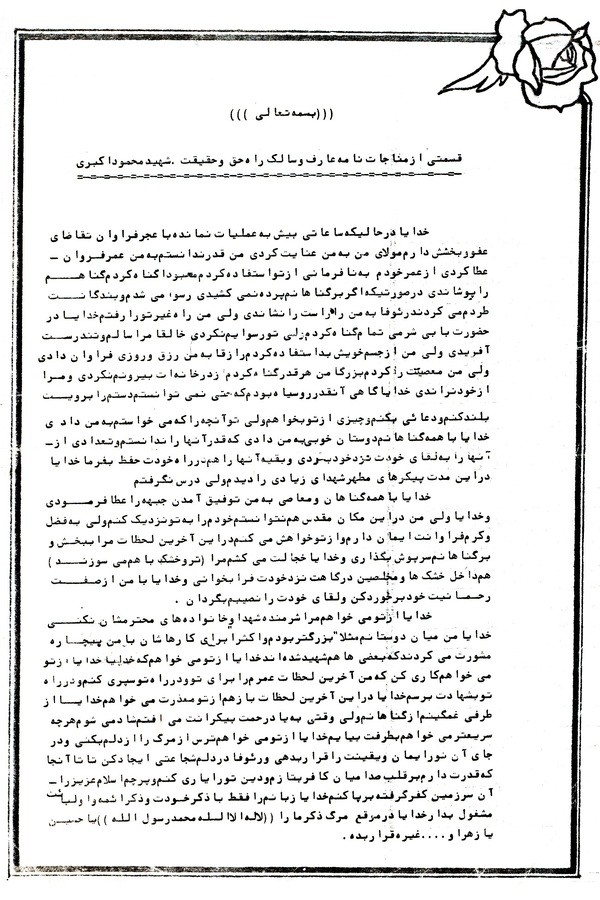 (((بسمه تعالی )))
قسمتی از مناجات نامه عارف وسالک راه حق وحقیقت .شهید محمود اکبری
خدایا درحالیکه ساعاتی بیش به عملیات نمانده با عجز فراوان تقاضای
عفووبخشش دارم مولای من به من عنایت کردی من قدرندانستم به من عمر فراوان ـ
عطا کردی ازعمر خودم به نافرمانی ازتو استفاده کردم معبودا گناه کردم گناهـم
را پوشاندی درصورتیکه اگر برگناهانم پرده نمی کشیدی رسوا می شدم وبندگانـت
طردم می کردند رئوفا به من راه راست را نشاندی ولی من راه غیر تو را رفتم خدایا در
حضورت با بی شرمی تمام گناه کردم ولی تو رسوایم نکردی خالقا مرا سالم وتندرست
آفریدی ولی من ازجسم خویش بد استفاده کردم رزاقا به من رزق وروزی فراوان دادی
ولی من معصیتت را کردم بزرگا من هرقدر گناه کردم ازدر خانه ات بیرونم نکردی ومرا
ازخود نراندی خدایا گاهی آنقدر روسیاه بودم که حتی نمی توانستم دستم را برویـت
بلند کنم ودعائی بکنم وچیزی ازتو بخواهم ولی تو آنچه را که می خواستم به من دادی
خدایا با همه گناهانم دوستان خوبی به من دادی که قدر آنها را ندانستم وتعدادی ازـ
آنها را به لقای خودت نزد خود بردی وبقیه آنها را هم در راه خودت حفظ بفرما خدایا
دراین مدت پیکرهای مطهر شهدای زیادی را دیدم ولی درس نگرفتم
خدایا با همه گناهان ومعاصی به من توفیق آمدن جبهه را عطا فرمـودی
وخدایا ولی من دراین مکان مقدس هم نتوانستم خودم را به تو نزدیک کنم ولی به فضل
وکرم فراوانت ایمان دارم واز تو خواهش می کنم دراین آخرین لحظات مرا ببخش و
برگناهانم سرپوش بگذاری وخدایا خجالت می کشم مرا (تروخشک با هم می سوزنـد )
هم داخل خشک ها ومخلصین درگاهت نزد خودت فرا بخوانی وخدایا با من ازصفـت
رحمانیت خود برخورد کن ولقای خودت را نصیبم بگردان .
خدایا ازتو می خواهم مرا شرمنده شهدا وخانواده های محترمشان نکنـی
خدایا من میان دوستانم مثلا" بزرگتر بودم واکثرا برای کارهاشان با من بیچـاره
مشورت می کردند که بعضی ها هم شهید شده اند خدایا ازتو می خواهم که خدایا خدایا ازتو
می خواهم کاری کن که من آخرین لحظات عمرم را برای تو ودر راه تو سپری کنم ودر راه
تو بشهادت برسم خدایا دراین آخرین لحظات باز هم ازتو معذرت می خواهم خدایـا از
طرفی غمگینم ازگناهانم ولی وقتی به یاد رحمت بیکرانت می افتم شاد می شوم هرچه
سریعتر می خواهم بطرفت بیایم خدایا ازتو می خواهم ترس ازمرگ را ازدلم بکنی ودر
جای آن نور ایمان ویقینت را قرار بدهی ورئوفا دردلم شجاعتی ایجاد کن تا تا آنجا
که قدرت دارم برقلب صدامیان کافر بتازم ودین تو را یاری کنم وپرچم اسلام عزیز راـ
آن سرزمین کفر گرفته برپا کنم خدایا زبانم را فقط با ذکر خودت وذکر ائمه واولیائت
مشغول بدار خدایا درموقع مرگ ذکر ما را ((لااله الا الـله محمدرسول الـله ))یا حسیـن
یا زهرا و....غیره قرار بده .